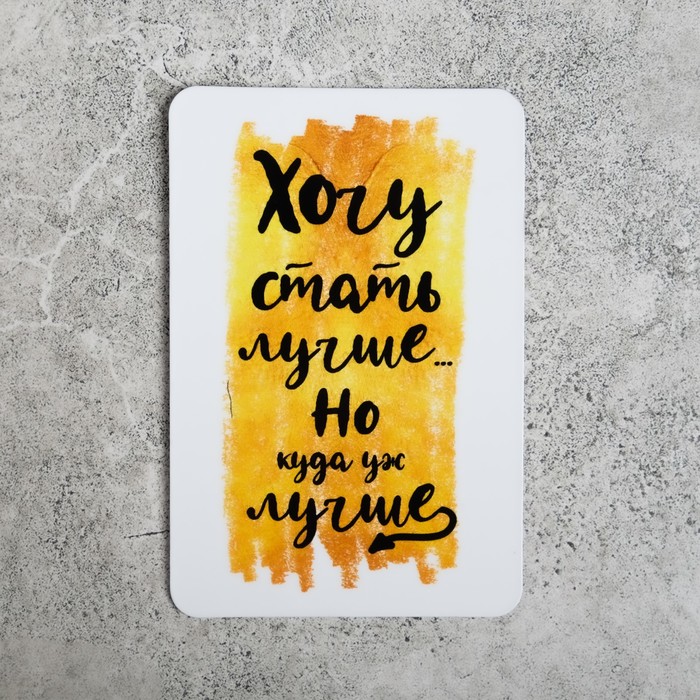 Хочу
стать
лучше...
Но
куда уж
лучше